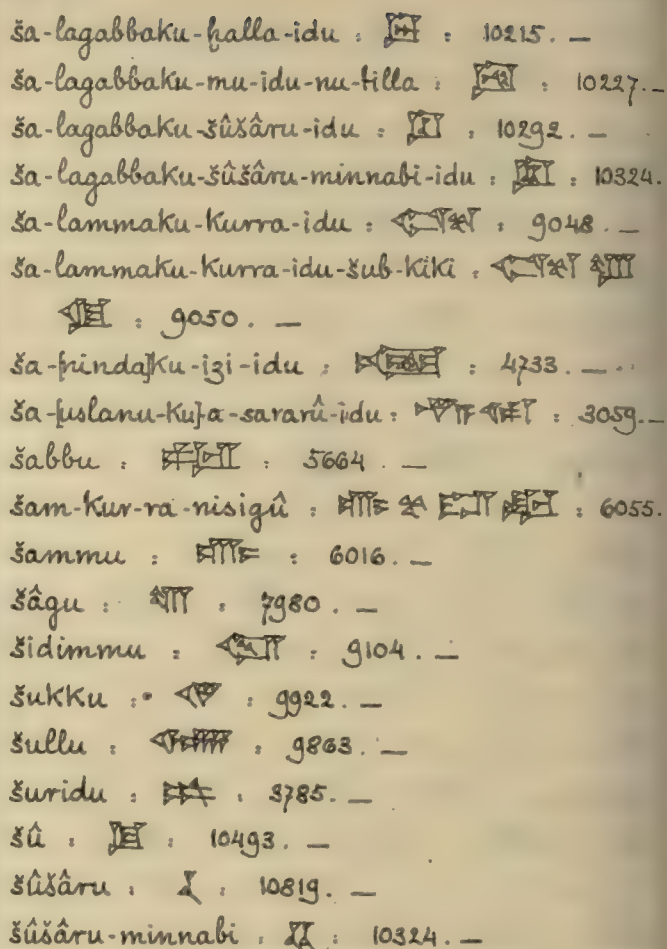 ša-lagabbaku-ḫalla-idu : : 10215. —
ša-lagabbaku-mu-idu-nu-tilla : : 10227. —
ša-lagabbaku-šûšâru-idu : : 10292. —
ša-lagabbaku-šûšâru-minnabi-idu : : 10324.
ša-lammaku-Kurra-idu : : 9048. —
ša-lammaku-Kurra-idu-šub-Kiki :
: 9050. —
ša-[ninda]Ku-izi-idu : : 4733. —
ša-[uslanu-Ku]-a-sararû-idu : : 3059. —
šabbu : : 5664. —
šam-Kur-ra-nisigû : : 6055.
šammu : : 6016. —
šâgu : : 7980. —
šidimmu : : 9104. —
šukku : : 9922. —
šullu : : 9863. —
šuridu : : 3785. —
šû : : 10493. —
šûšâru : : 10819. —
šûšâru-minnabi : : 10324. —